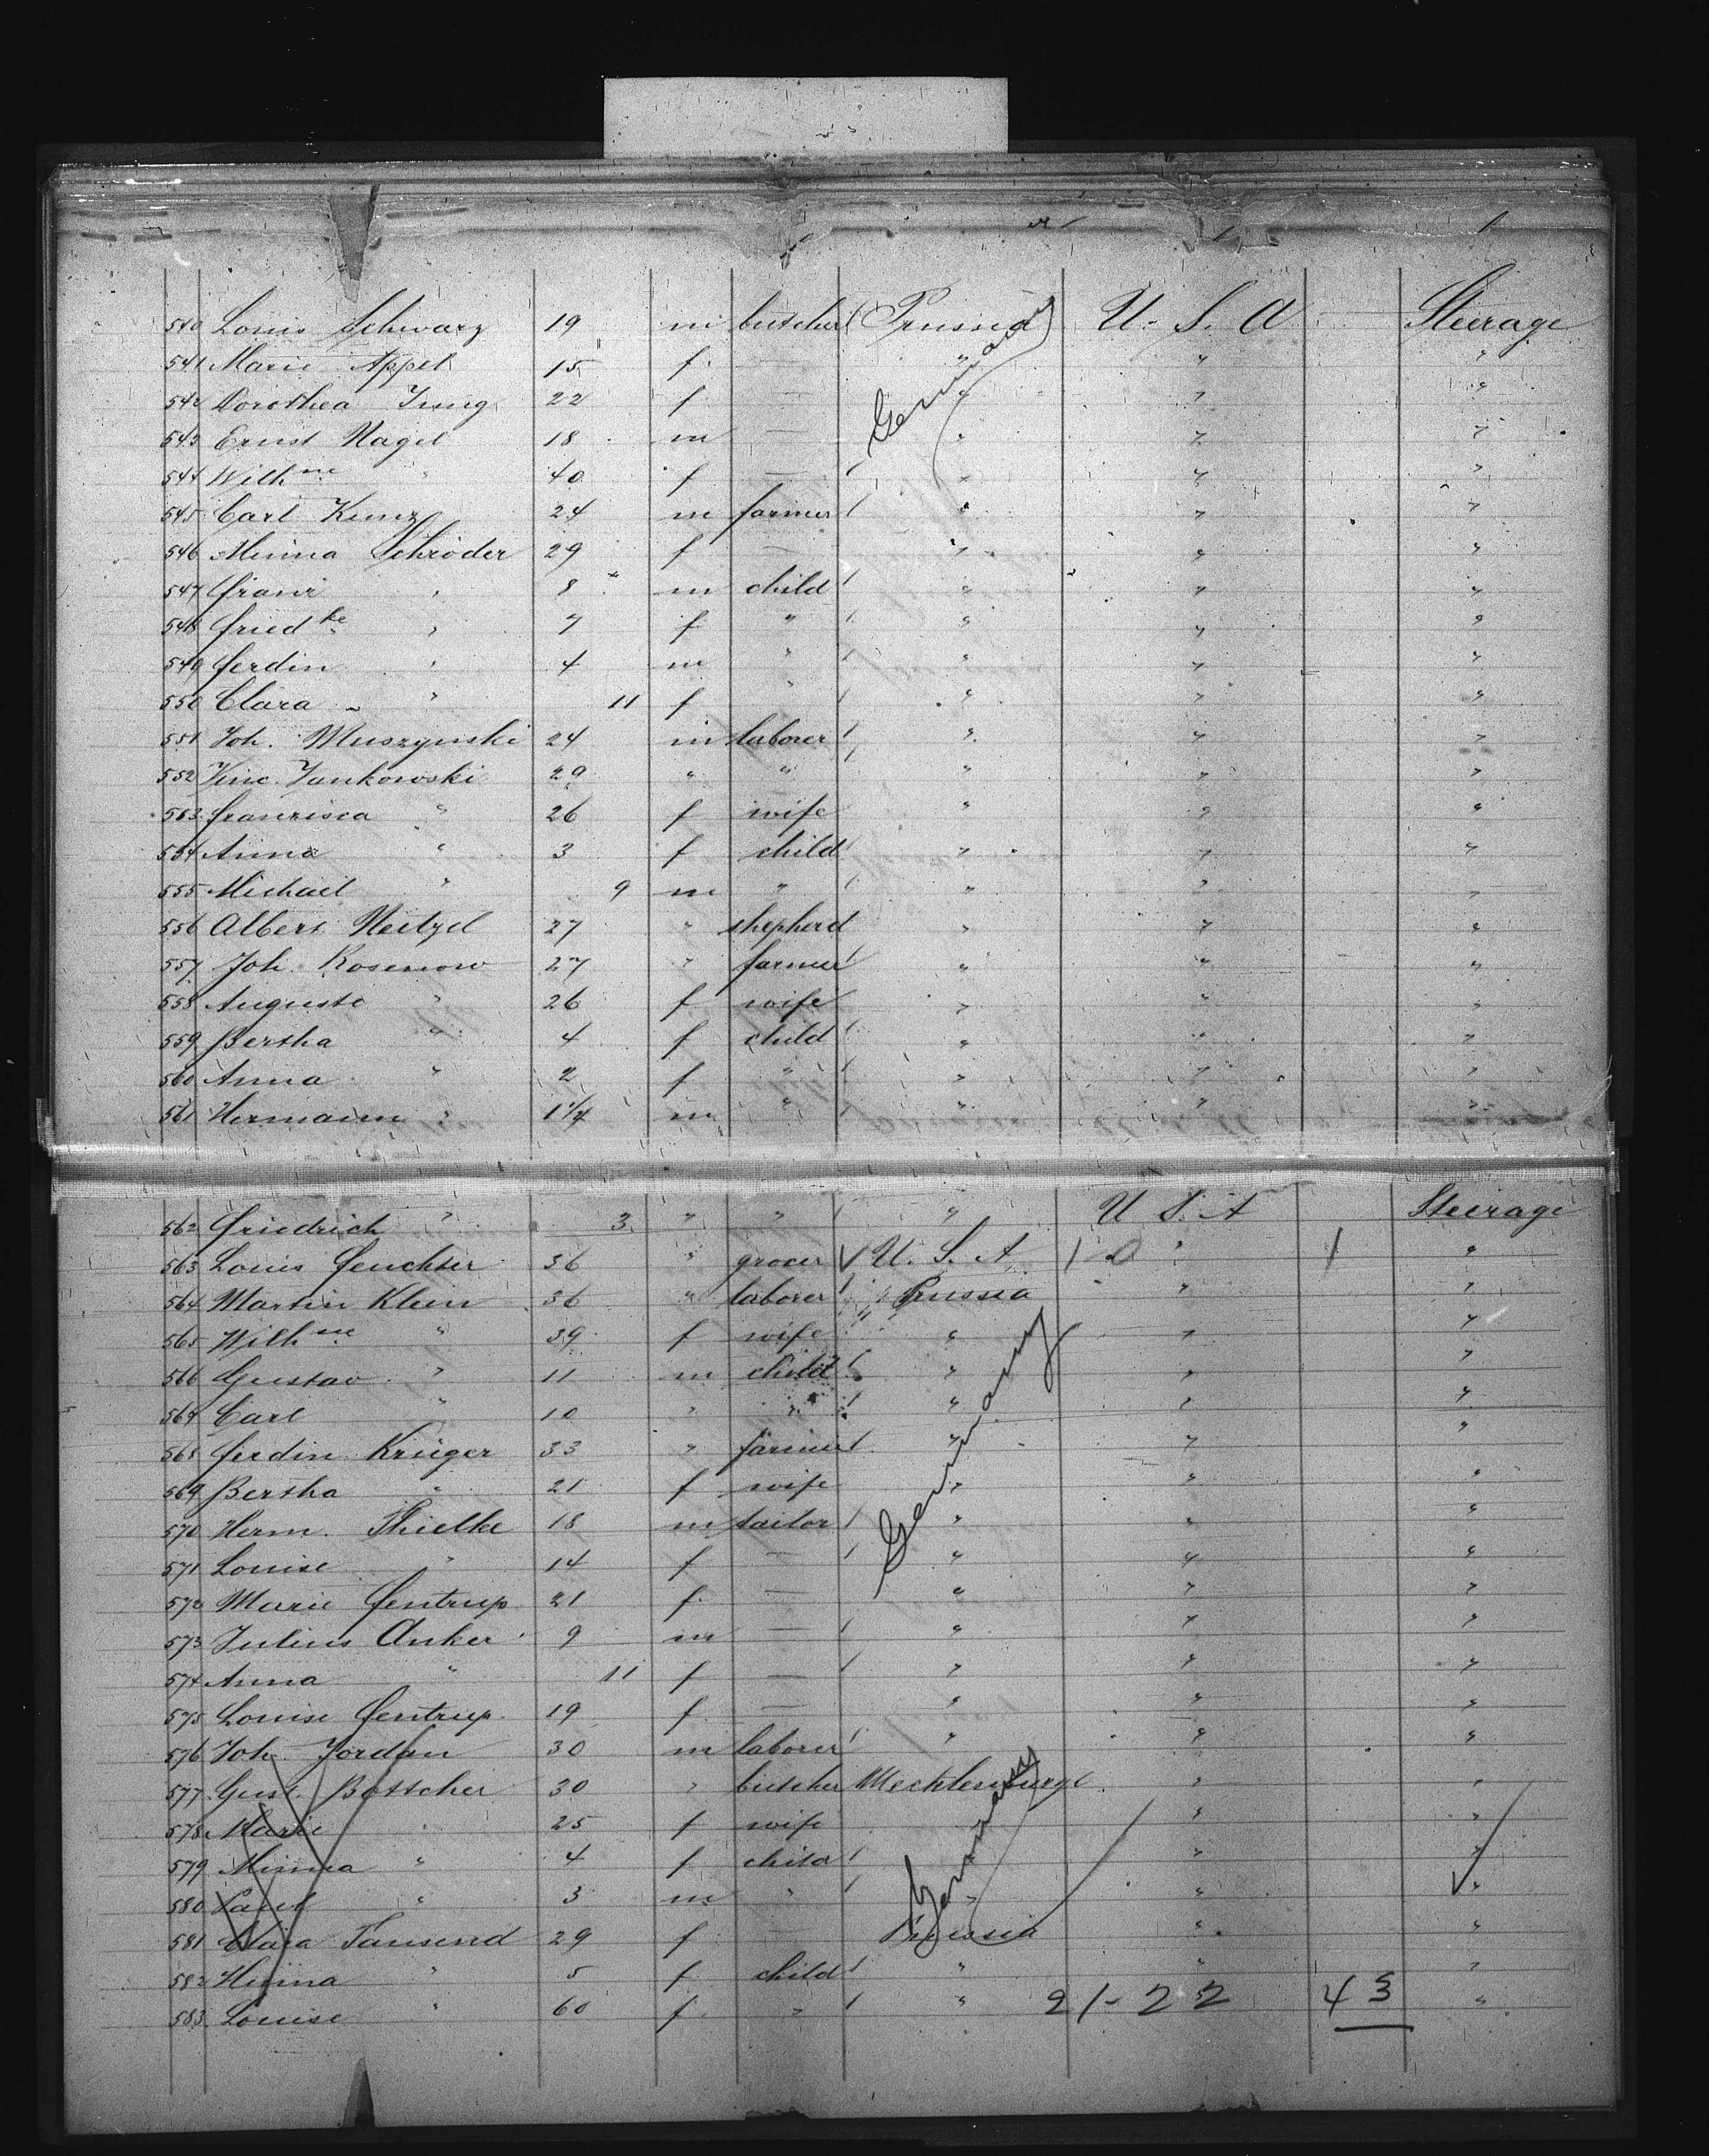 540 Louis Schwarz 19 m butcher Prussia U. S. A Steerage
541 Marie Appel 15 f. — " " "
542 Dorothea Jung 22 f — " " "
543 Ernst Nagel 18 m — " " "
544 Wilhne " 40 f — " " "
545 Carl Kunz 24 m farmer " " "
546 Minna Schröder 29 f — " " "
547 Franz " 8 m child " " "
548 Friedke " 7 f " " " "
549 Ferdin " 4 m " " " "
550 Clara " 11 f " " " "
551 Joh. Muszynski 24 m laborer " " "
552 Vinc. Jankowski 29 " " " " "
553 Franzisca " 26 f wife " " "
554 Anna " 3 f child " " "
555 Michael " 9 m " " " "
556 Albert Neitzel 27 " shepherd " " "
557 Joh. Rosenow 27 " farmer " " "
558 Auguste " 26 f wife " " "
559 Bertha " 4 f child " " "
560 Anna " 2 f " " " "
561 Hermann " 1 1/4 m " " " "
Germany
562 Friedrich " 3 " " " U S. A Steerage
563 Louis Feuchter 36 " grocer U. S. A. 1 " 1 "
564 Martin Klein 36 " laborer Prussia " "
565 Wilhne " 39 f wife " " "
566 Gustav " 11 m child " " "
567 Carl " 10 " " " " "
568 Ferdin Krüger 33 " farmer " " "
569 Bertha " 21 f wife " " "
570 Herm. Thielke 18 m tailor " " "
571 Louise " 14 f — " " "
572 Marie Fentrup 21 f. — " " "
573 Julius Anker 9 m — " " "
574 Anna " 11 f — " " "
575 Louise Fentrup 19 f — " " "
576 Joh. Jordan 30 m laborer " " "
577 Gust. Bottcher 30 " butcher Mecklenburg " "
578 Marie " 25 f wife " " "
579 Minna " 4 f child " " "
580 " 3 m " " " "
581 Clara Tausend 29 f — Prussia " "
582 " 5 f child " " "
583 Louise " 60 f " " 21-22 43 "
Germany
Germany